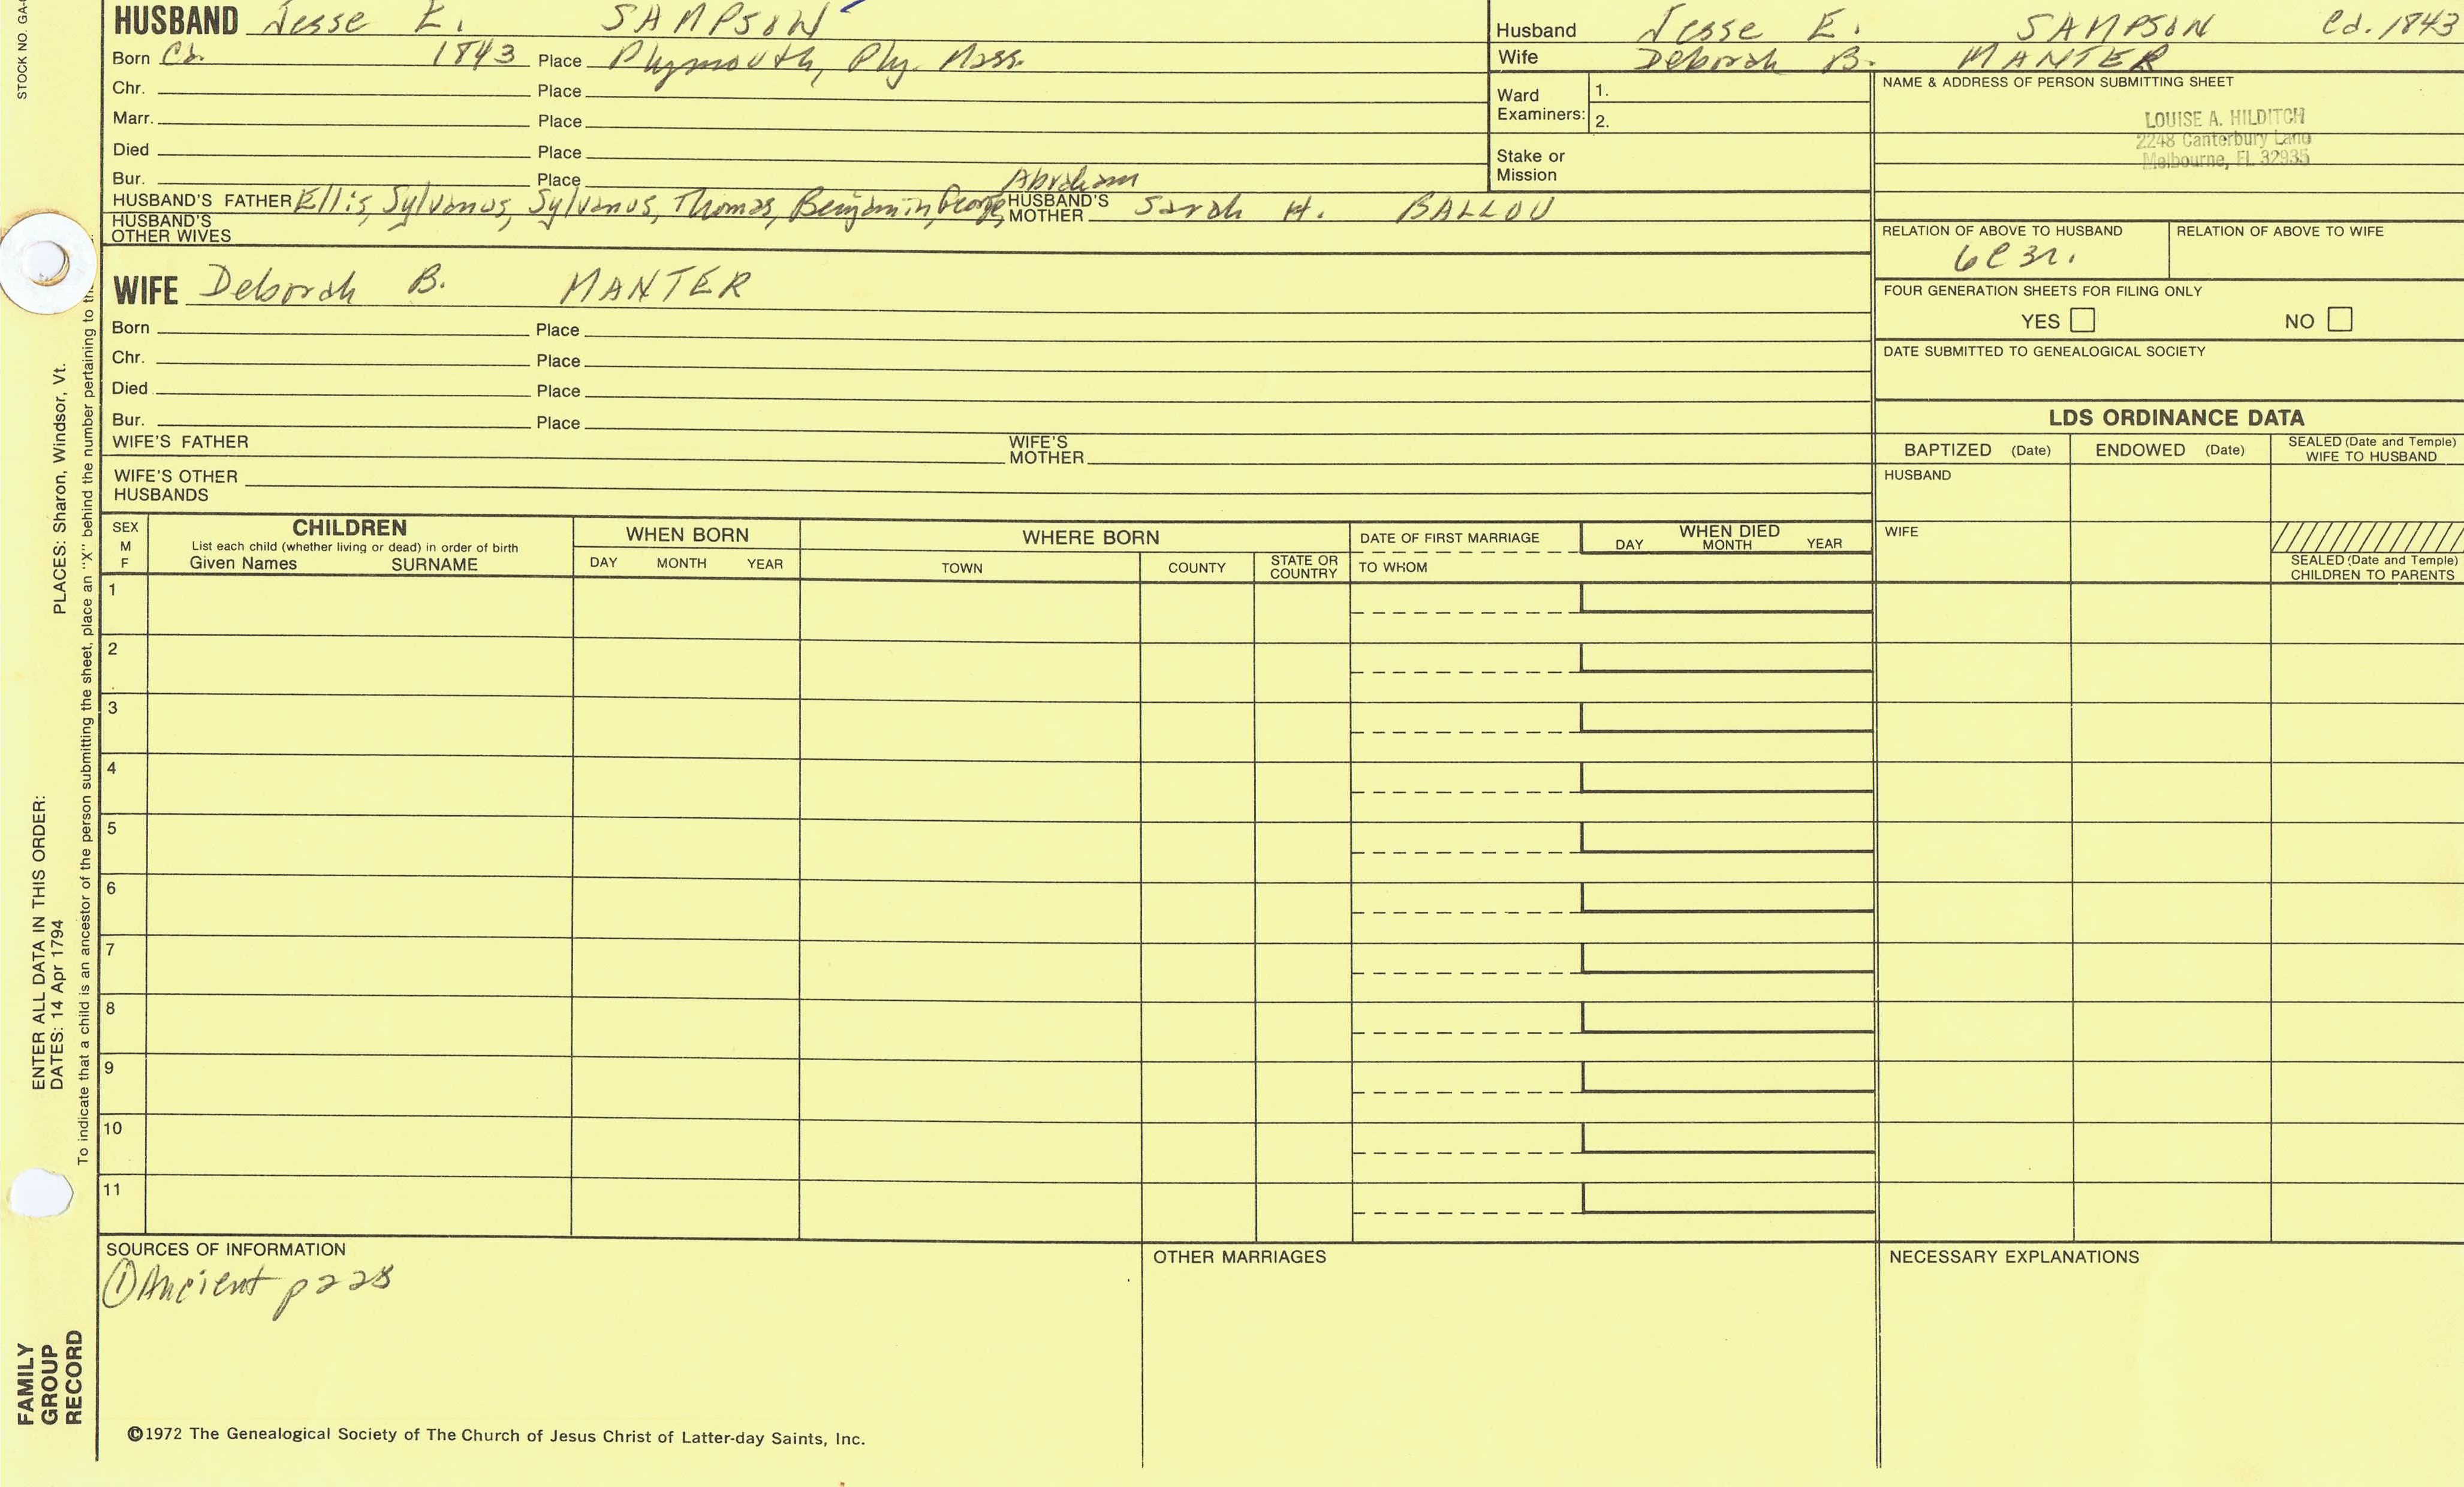 STOCK NO. GA-
HUSBAND Jesse E. SAMPSON
Born Ca. 1843 Place Plymouth, Ply. Mass.
Chr. Place
Marr. Place
Died Place
Bur. Place
Abraham
HUSBAND'S FATHER Ellis, Sylvanus, Sylvanus, Thomas, Benjamin, George, HUSBAND'S MOTHER Sarah H. BALLOU
HUSBAND'S OTHER WIVES
Husband Jesse E. SAMPSON Cd. 1843
Wife Deborah B. MANTER
Ward Examiners: 1.
2.
Stake or Mission
NAME & ADDRESS OF PERSON SUBMITTING SHEET
LOUISE A. HILDITCH
2248 Canterbury Lane
Melbourne, FL 32935
RELATION OF ABOVE TO HUSBAND RELATION OF ABOVE TO WIFE
6C3r.
FOUR GENERATION SHEETS FOR FILING ONLY
YES NO
DATE SUBMITTED TO GENEALOGICAL SOCIETY
WIFE Deborah B. MANTER
Born Place
Chr. Place
Died Place
Bur. Place
WIFE'S FATHER WIFE'S MOTHER
WIFE'S OTHER HUSBANDS
LDS ORDINANCE DATA
BAPTIZED (Date) ENDOWED (Date) SEALED (Date and Temple) WIFE TO HUSBAND
HUSBAND
WIFE
SEALED (Date and Temple) CHILDREN TO PARENTS
SEX M F
CHILDREN
List each child (whether living or dead) in order of birth
Given Names SURNAME
WHEN BORN
DAY MONTH YEAR
WHERE BORN
TOWN COUNTY STATE OR COUNTRY
DATE OF FIRST MARRIAGE
TO WHOM
WHEN DIED
DAY MONTH YEAR
1
2
3
4
5
6
7
8
9
10
11
SOURCES OF INFORMATION
① Ancient p228
OTHER MARRIAGES
NECESSARY EXPLANATIONS
©1972 The Genealogical Society of The Church of Jesus Christ of Latter-day Saints, Inc.
FAMILY GROUP RECORD
ENTER ALL DATA IN THIS ORDER:
DATES: 14 Apr 1794
PLACES: Sharon, Windsor, Vt.
To indicate that a child is an ancestor of the person submitting the sheet, place an "X" behind the number pertaining to